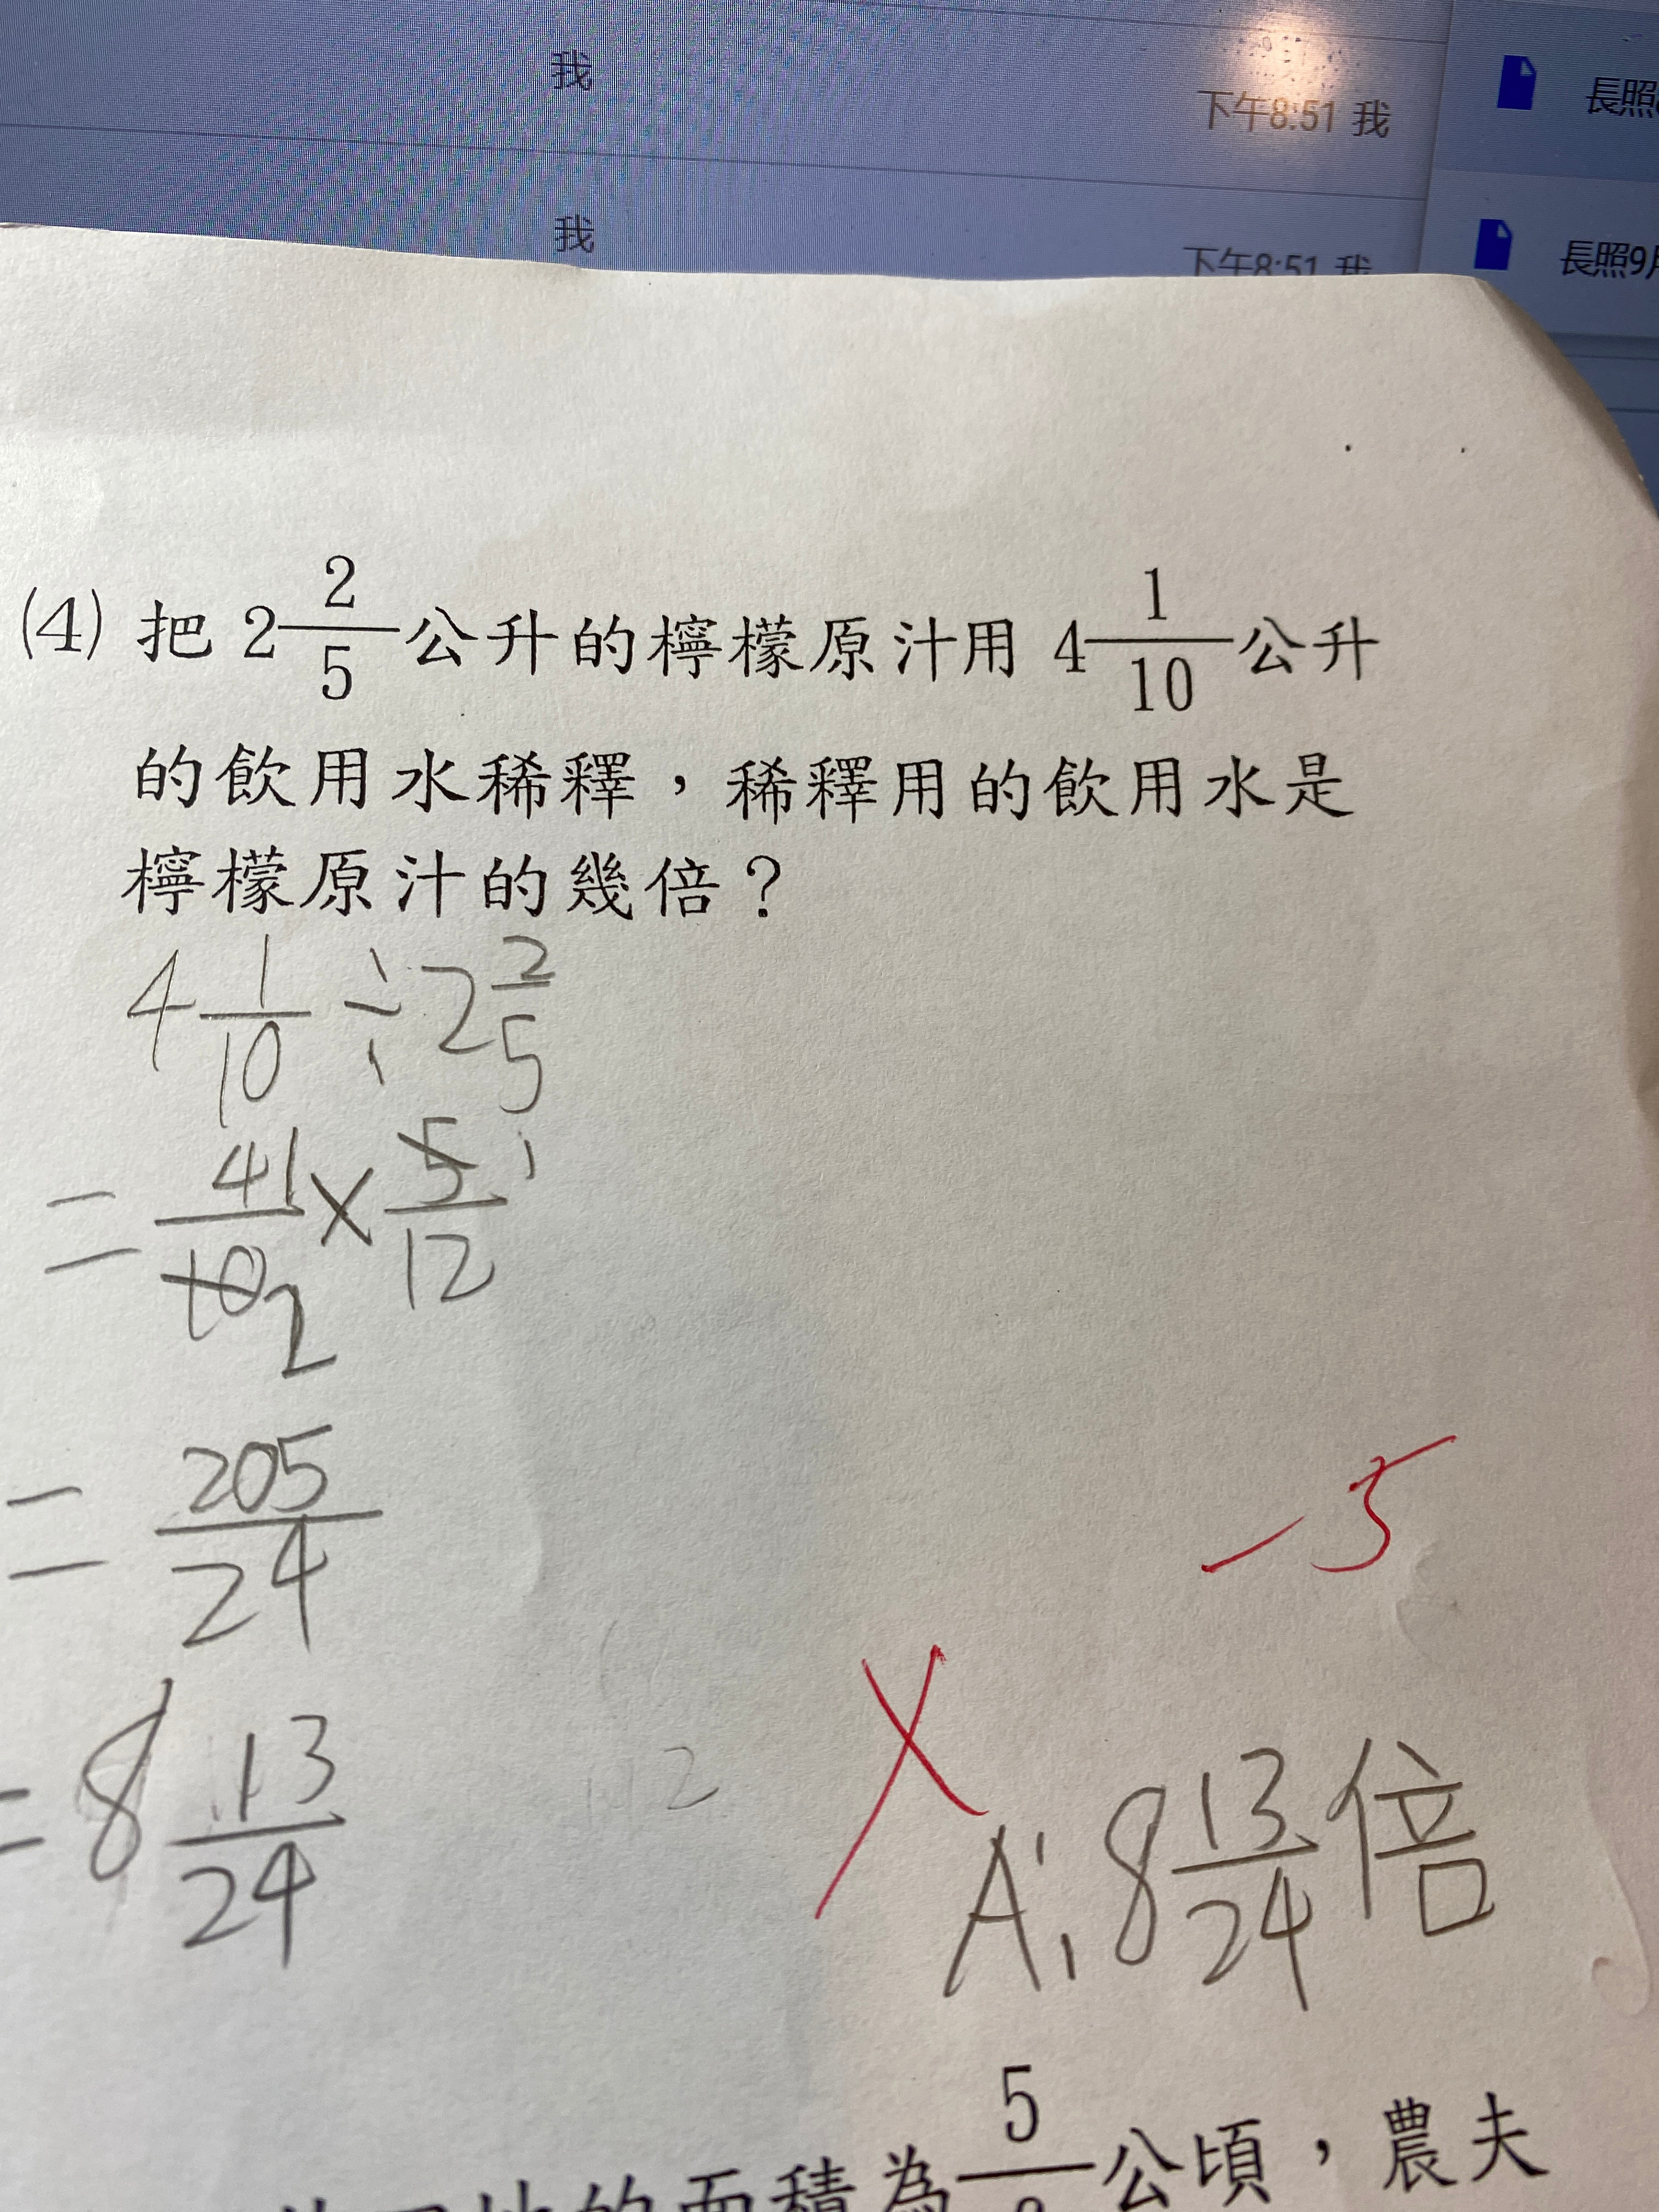 我
下午8:51 我
長照
我
下午8:51 我
長照9月
(4) 把 2 2/5 公升的檸檬原汁用 4 1/10 公升
的飲用水稀釋，稀釋用的飲用水是
檸檬原汁的幾倍？
4 1/10 ÷ 2 2/5
= 41/10 2 × 5/12 1
= 205/24
-5
= 8 13/24
12
A: 8 13/24 倍
的面積為 5/ 公頃，農夫